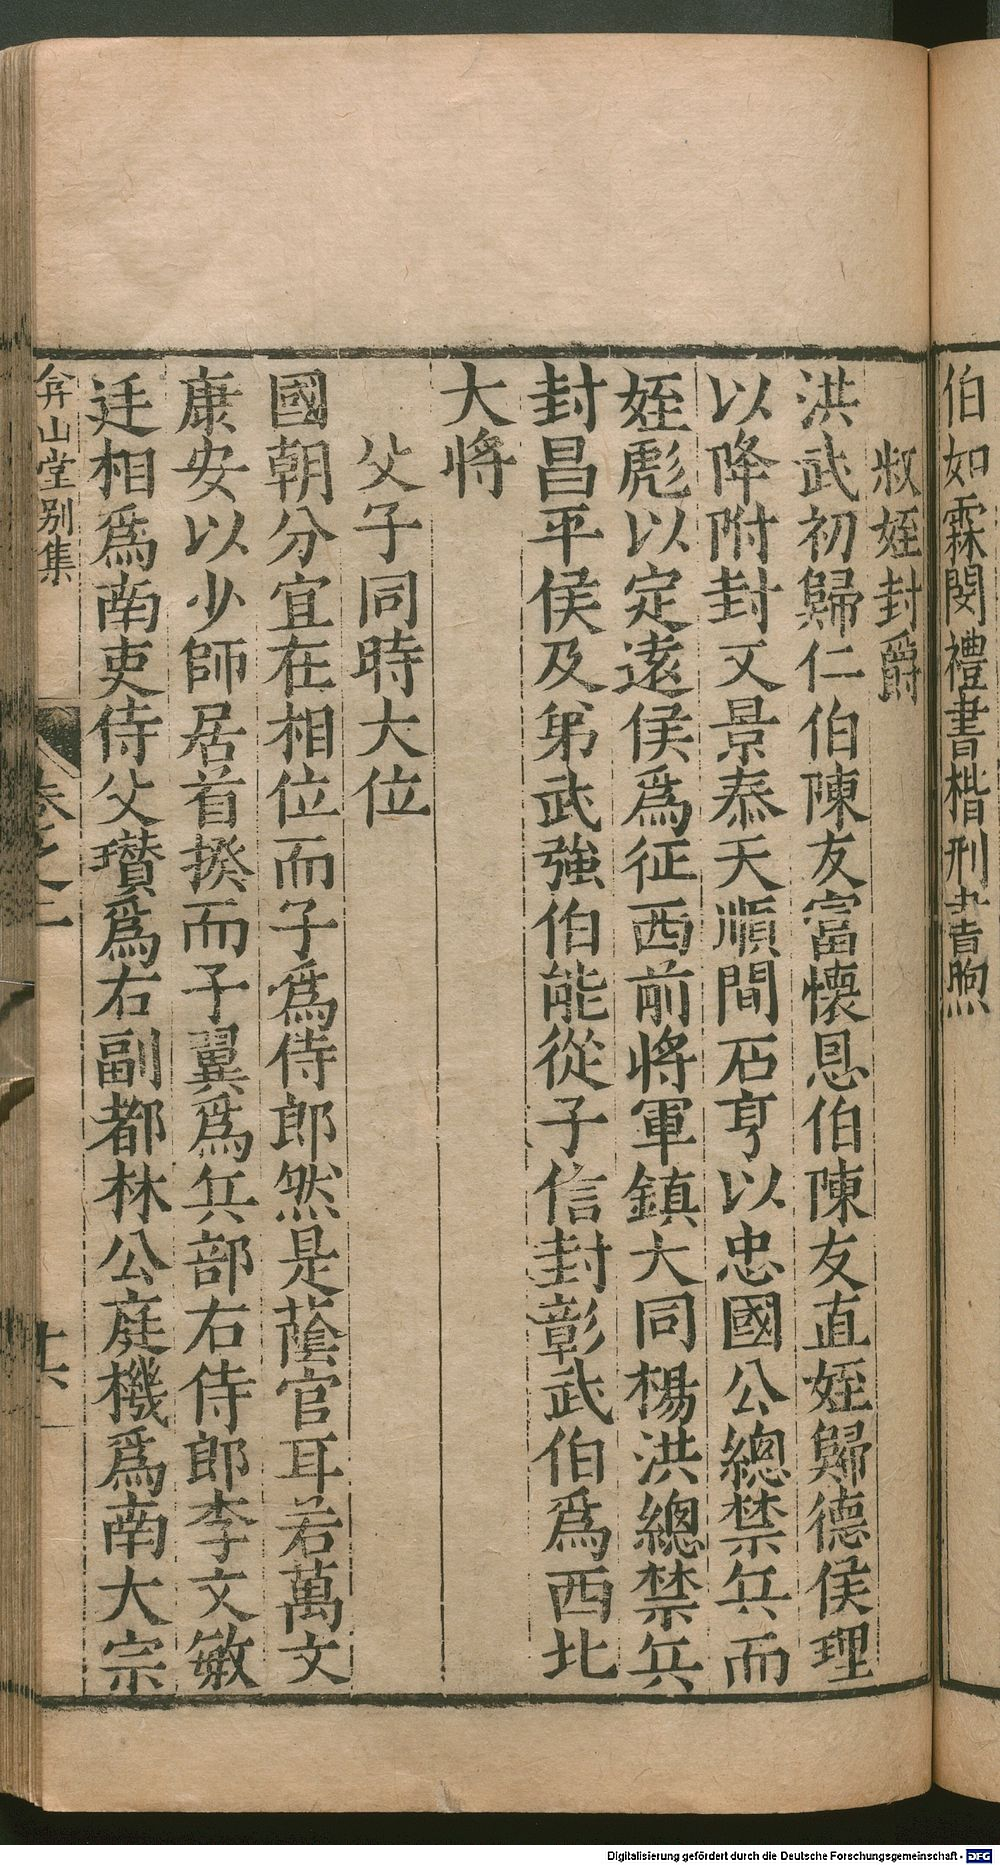 伯如霖閔禮書楷刑書煦
叔姪封爵
洪武初歸仁伯陳友富懷恩伯陳友直姪歸德侯理
以降附封又景泰天順間石亨以忠國公總禁兵而
姪彪以定遠侯爲征西前將軍鎮大同楊洪總禁兵
封昌平侯及弟武強伯能從子信封彰武伯爲西北
大將
父子同時大位
國朝分宜在相位而子爲侍郎然是蔭官耳若萬文
康安以少師居首揆而子翼爲兵部右侍郎李文敏
廷相爲南吏侍父瓚爲右副都林公庭機爲南大宗
弇山堂别集
卷之二
十六
Digitalisierung gefördert durch die Deutsche Forschungsgemeinschaft - DFG